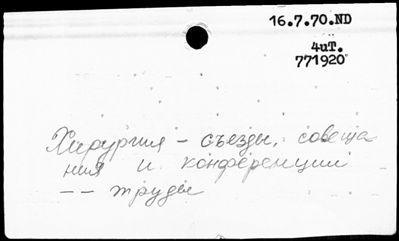 16.7.70.ND
4иT.
771920
Хирургия – съезды, совеща
ния и конференции
–– труды